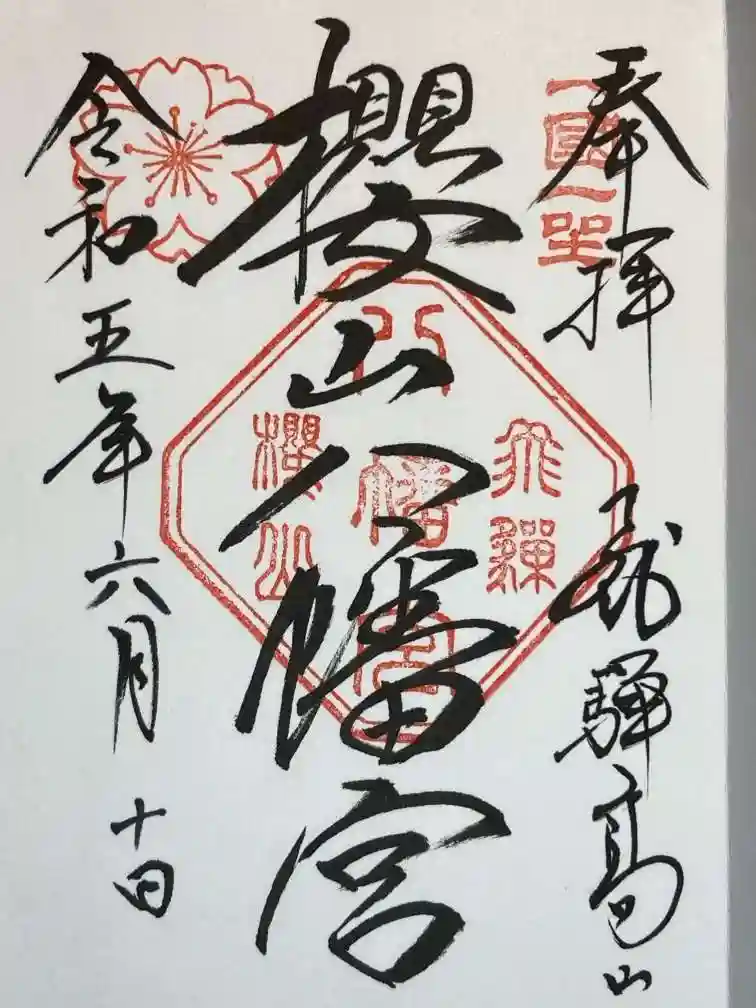 奉拝
飛騨高山
一国一社
櫻山八幡宮
飛騨
八幡宮
櫻山
令和五年六月十日